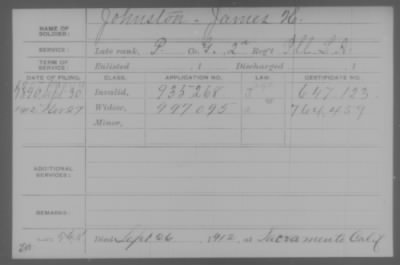 NAME OF SOLDIER: Johnston, James H.
SERVICE: Late rank, P. Co. G, 2" Reg't Ill. L.A.
TERM OF SERVICE: Enlisted , 1 Discharged , 1
DATE OF FILING. CLASS. APPLICATION NO. LAW. CERTIFICATE NO.
1890 Sept 30 Invalid, 935268 647.123
1912 Nov 27 Widow, 997095 764.459
Minor,
ADDITIONAL SERVICES:
REMARKS:
Died Sept. 26 , 1912, at Sacramento Calif